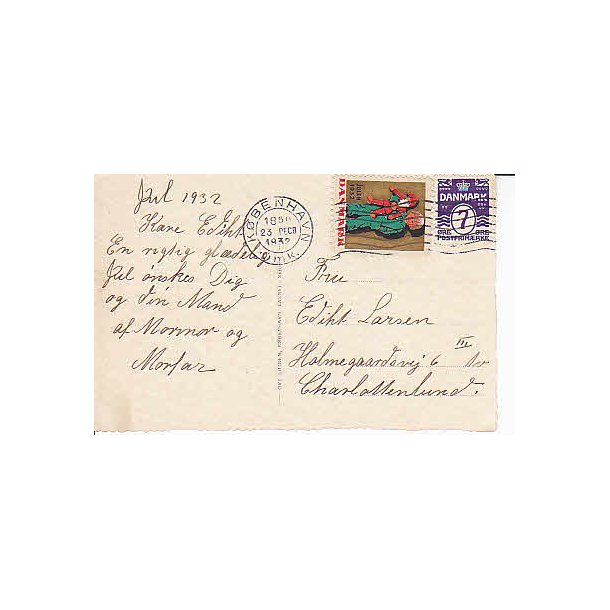 Jul 1932
Kære Ediht
En rigtig glædelig
Jul ønskes Dig
og Din Mand
af Mormor og
Morfar
KØBENHAVN
1850
23 DECB
1932
OMK.
DANMARK
JULEN
1932
DANMARK
7
ØRE ØRE
POSTFRIMÆRKE
Fru
Ediht Larsen
Holmegaardsvej 6 III tv
Charlottenlund.